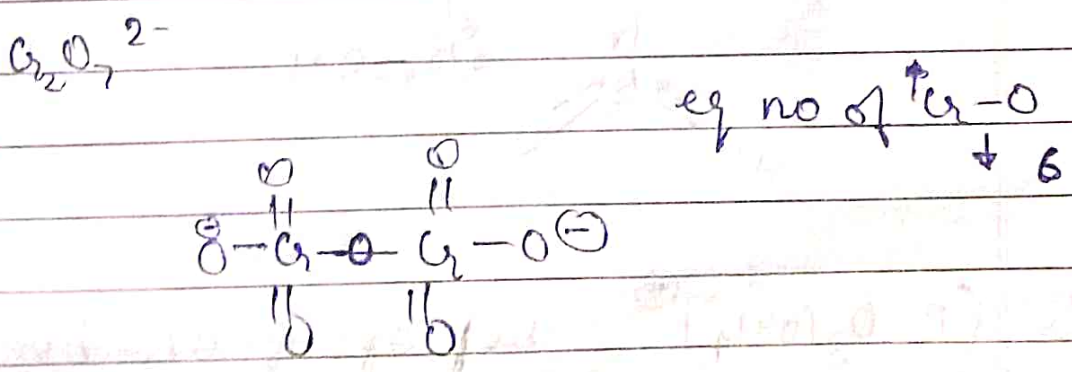 Cr₂O₇²⁻
eq no of ↑Cr–O
↓ 6
O O
|| ||
⊖O–Cr–O–Cr–O⊖
|| ||
O O